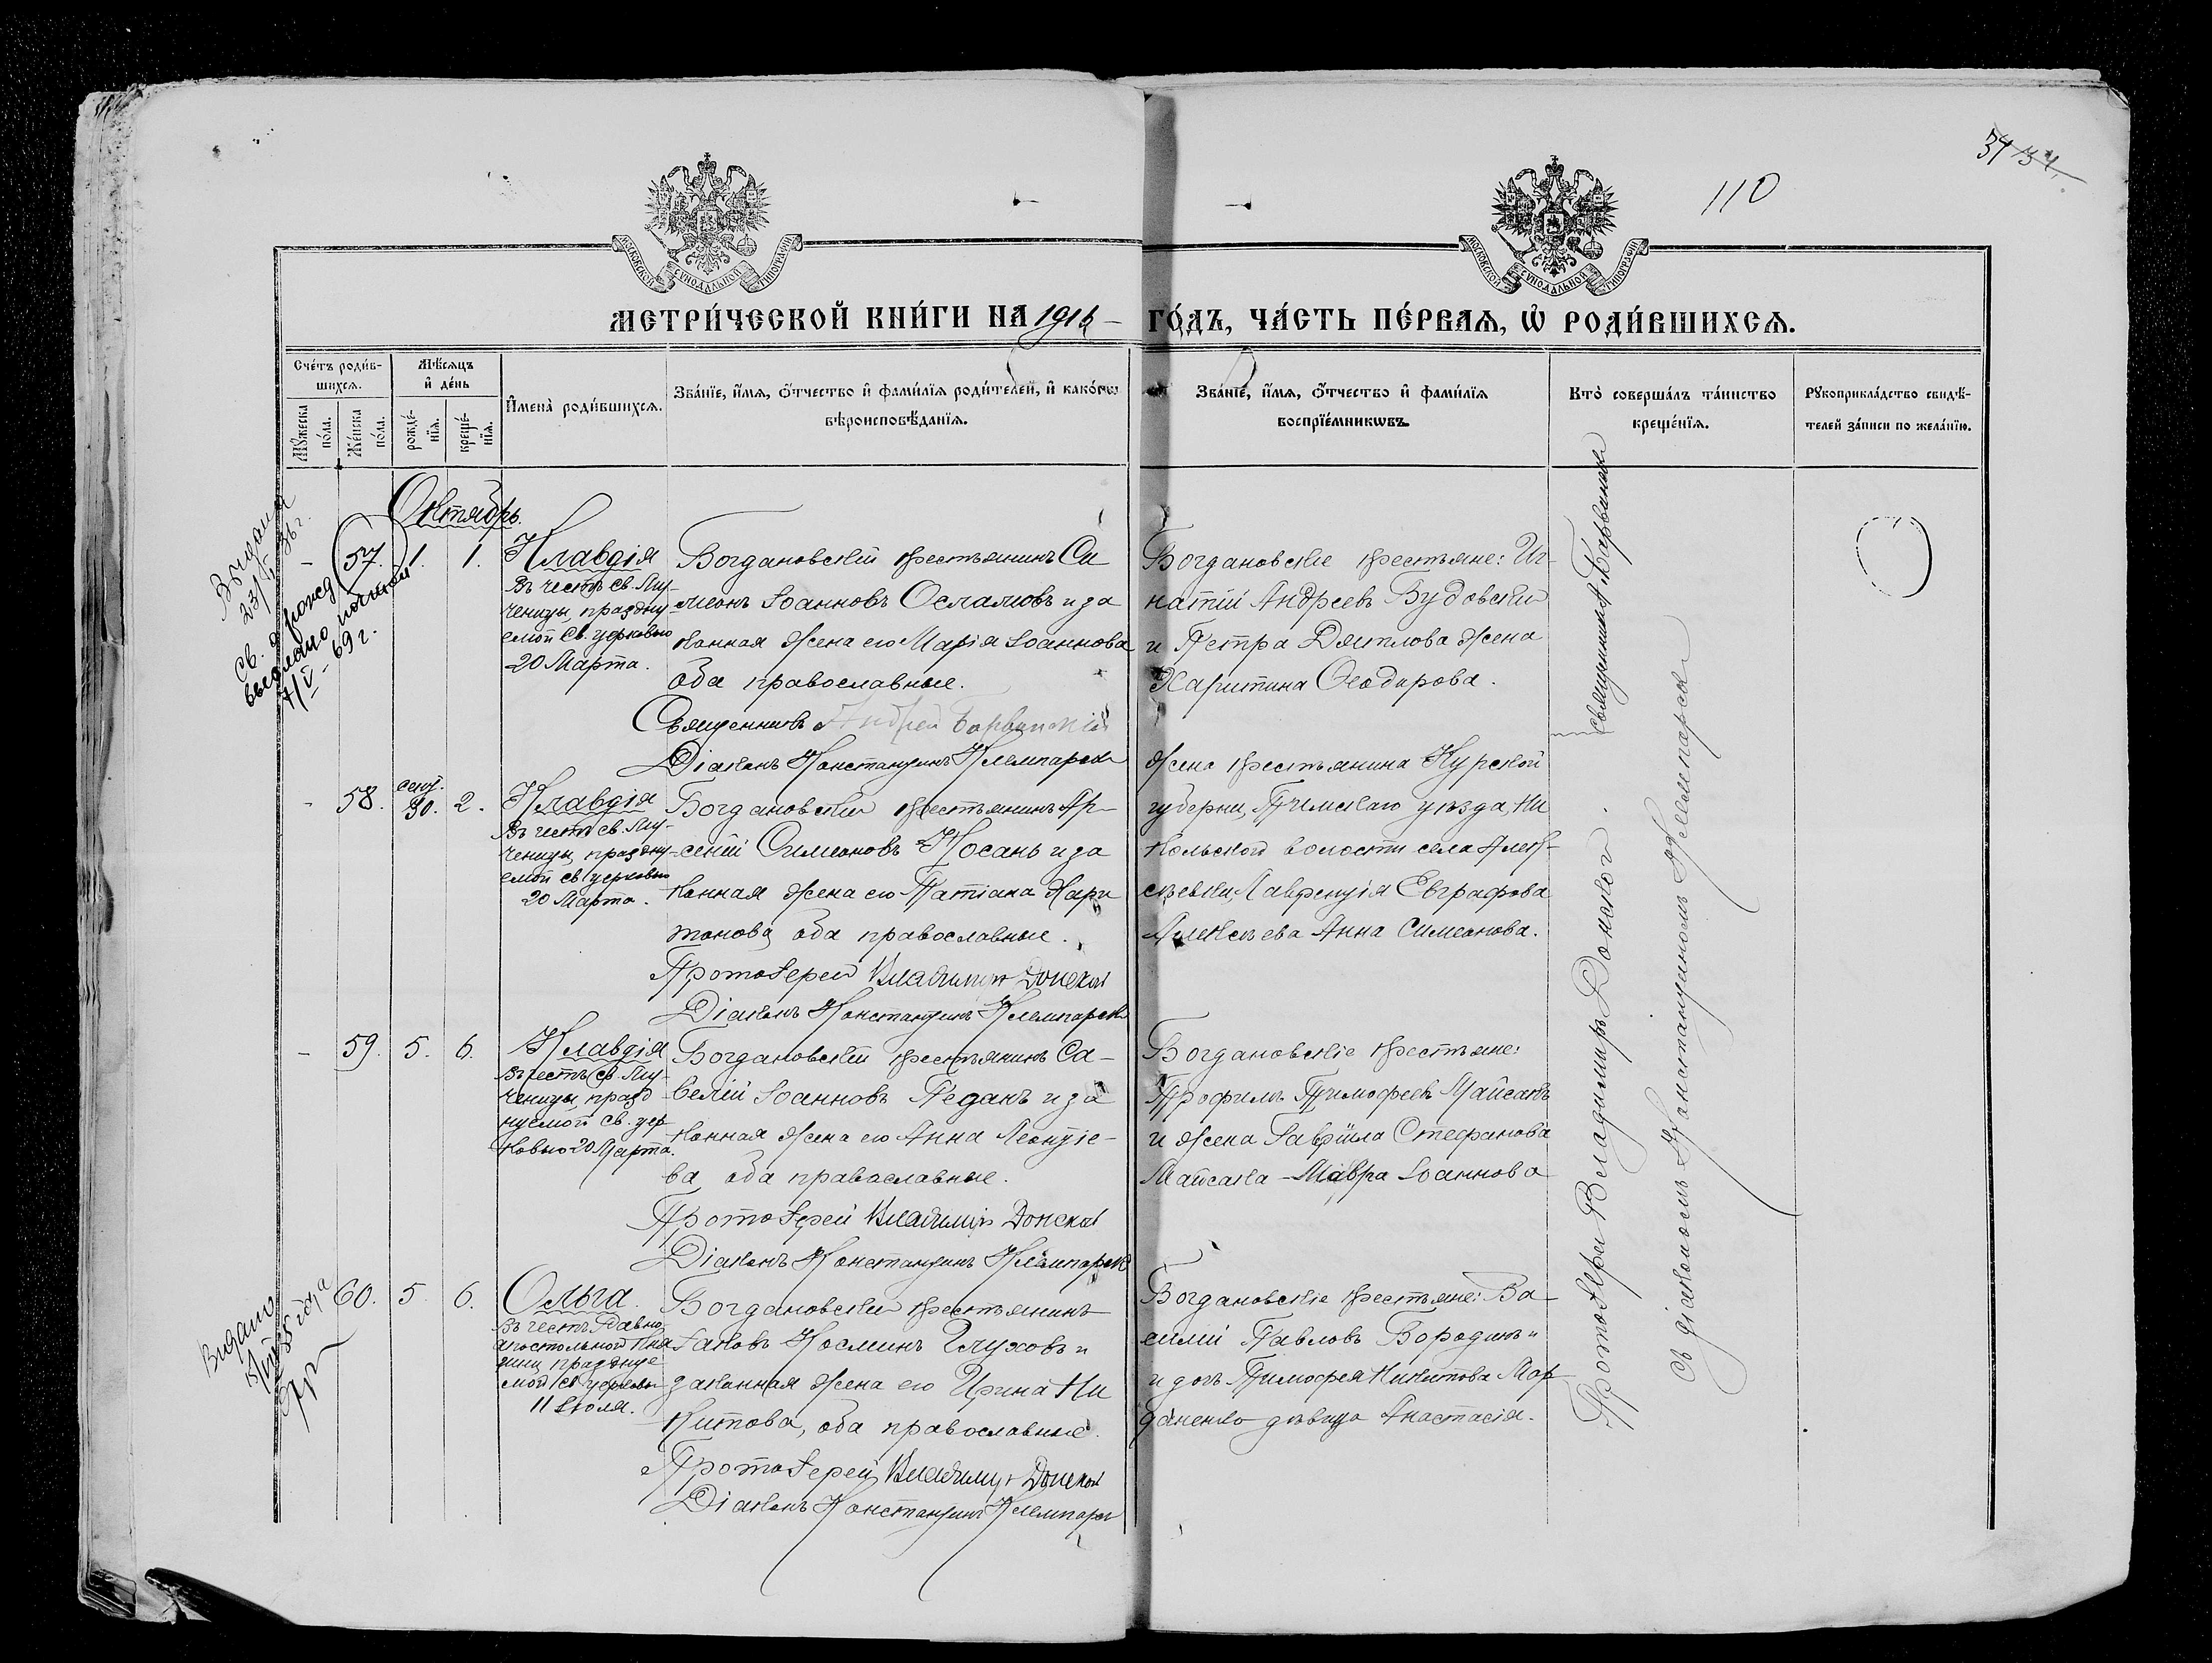 110
МОСКОВСКОЙ СѴНОДАЛЬНОЙ ТИПОГРАФІИ
МОСКОВСКОЙ СѴНОДАЛЬНОЙ ТИПОГРАФІИ
МЕТРИ́ЧЕСКОЙ КНИ́ГИ НА 1915 ГО́ДЪ, ЧА́СТЬ ПЕ́РВАЯ, Ѡ РОДИ́ВШИХСЯ.
Сче́тъ роди́в-
шихся.
Мꙋ́жеска
по́ла.
Же́нска
по́ла.
Мѣ́сяцъ
и҆ де́нь
рожде́-
нїя.
креще́-
нїя.
И҆мена̀ роди́вшихся.
Зва́нїе, и҆́мя, ѻ҆́тчество и҆ фами́лїя роди́телей, и҆ како́гѡ
вѣроисповѣ́данїя.
Зва́нїе, и҆́мя, ѻ҆́тчество и҆ фами́лїя
воспрїе́мникѡвъ.
Кто̀ соверша́лъ та́инство
креще́нїя.
Рꙋкоприкла́дство свидѣ́-
телей за́писи по жела́нїю.
Октябрь.
57. 1. 1.
Клавдія
Въ честь св. Му-
ченицы, праздну-
емой св. церковью
20 Марта.
Богдановскій крестьянинъ Си
меонъ Іоанновъ Осламовъ и за
конная жена его Марія Іоаннова
оба православные.
Священникъ Андрей Барвинскій
Діаконъ Константинъ
Богдановскіе крестьяне: Иг-
натій Андреевъ Будовскій
и Петра Дятлова жена
Харитина Ѳеодорова.
58. сент. 30. 2.
Клавдія
Въ честь св. Му-
ченицы, праздну-
емой св церковью
20 Марта.
Богдановскій крестьянинъ Ар-
сеній Симеоновъ Косань и за
конная жена его Татіана Хари
тонова, оба православные.
Протоіерей Владимиръ Донской
Діаконъ Константинъ
Жена крестьянина Курской
губерніи, Тимскаго уѣзда, Ни
кольской волости села Алек-
сѣевки, Лаврентія Евграфова
Алексѣева Анна Симеонова.
59. 5. 6.
Клавдія
Въ честь св. Му-
ченицы, празд
нуемой св. цер
ковью 20 Марта.
Богдановскій крестьянинъ Са-
велій Іоанновъ Педанъ и за
конная жена его Анна Леонтіе-
ва, оба православные.
Протоіерей Владимиръ Донской
Діаконъ Константинъ
Богдановскіе крестьяне:
Трофимъ Тимофеевъ Майсакъ
и жена Гавріила Стефанова
Майсака - Мавра Іоаннова
60. 5. 6.
Ольга.
Въ честь Равно
апостольной Кня
гини, праздгуе
мой св. церковью
11 Іюля.
Богдановскій крестьянинъ
Іаковъ Косминъ Глуховъ и
законная жена его Ирина Ни
китова, оба православные.
Протоіерей Владимиръ Донской
Діаконъ Константинъ
Богдановскіе крестьяне: Ва
силій Павловъ Бородинъ
и дочь Тимофея Никитова Мор
даненко дѣвица Анастасія.
Священникъ А. Барвинскій
Протоіерей Владимиръ Донской.
съ діакономъ Константиномъ
Выдана
св. о рожд
выслано почтой
69 г.
Видано